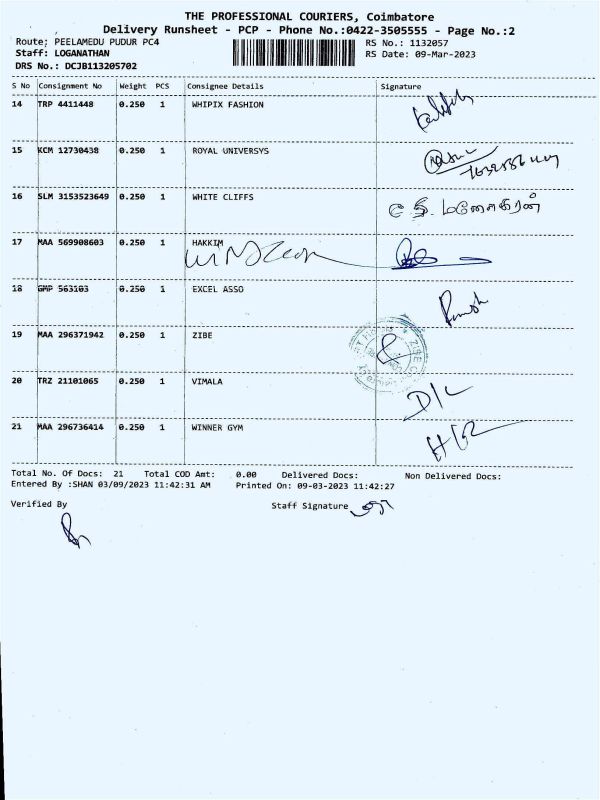 THE PROFESSIONAL COURIERS, Coimbatore
Delivery Runsheet - PCP - Phone No.:0422-3505555 - Page No.:2
Route; PEELAMEDU PUDUR PC4 RS No.: 1132057
Staff: LOGANATHAN RS Date: 09-Mar-2023
DRS No.: DCJB113205702
S No Consignment No Weight PCS Consignee Details Signature
14 TRP 4411448 0.250 1 WHIPIX FASHION
15 KCM 12730438 0.250 1 ROYAL UNIVERSYS
16 SLM 3153523649 0.250 1 WHITE CLIFFS
17 MAA 569908603 0.250 1 HAKKIM
18 GMP 563103 0.250 1 EXCEL ASSO
19 MAA 296371942 0.250 1 ZIBE
20 TRZ 21101065 0.250 1 VIMALA
21 MAA 296736414 0.250 1 WINNER GYM
Total No. Of Docs: 21 Total COD Amt: 0.00 Delivered Docs: Non Delivered Docs:
Entered By :SHAN 03/09/2023 11:42:31 AM Printed On: 09-03-2023 11:42:27
Verified By Staff Signature